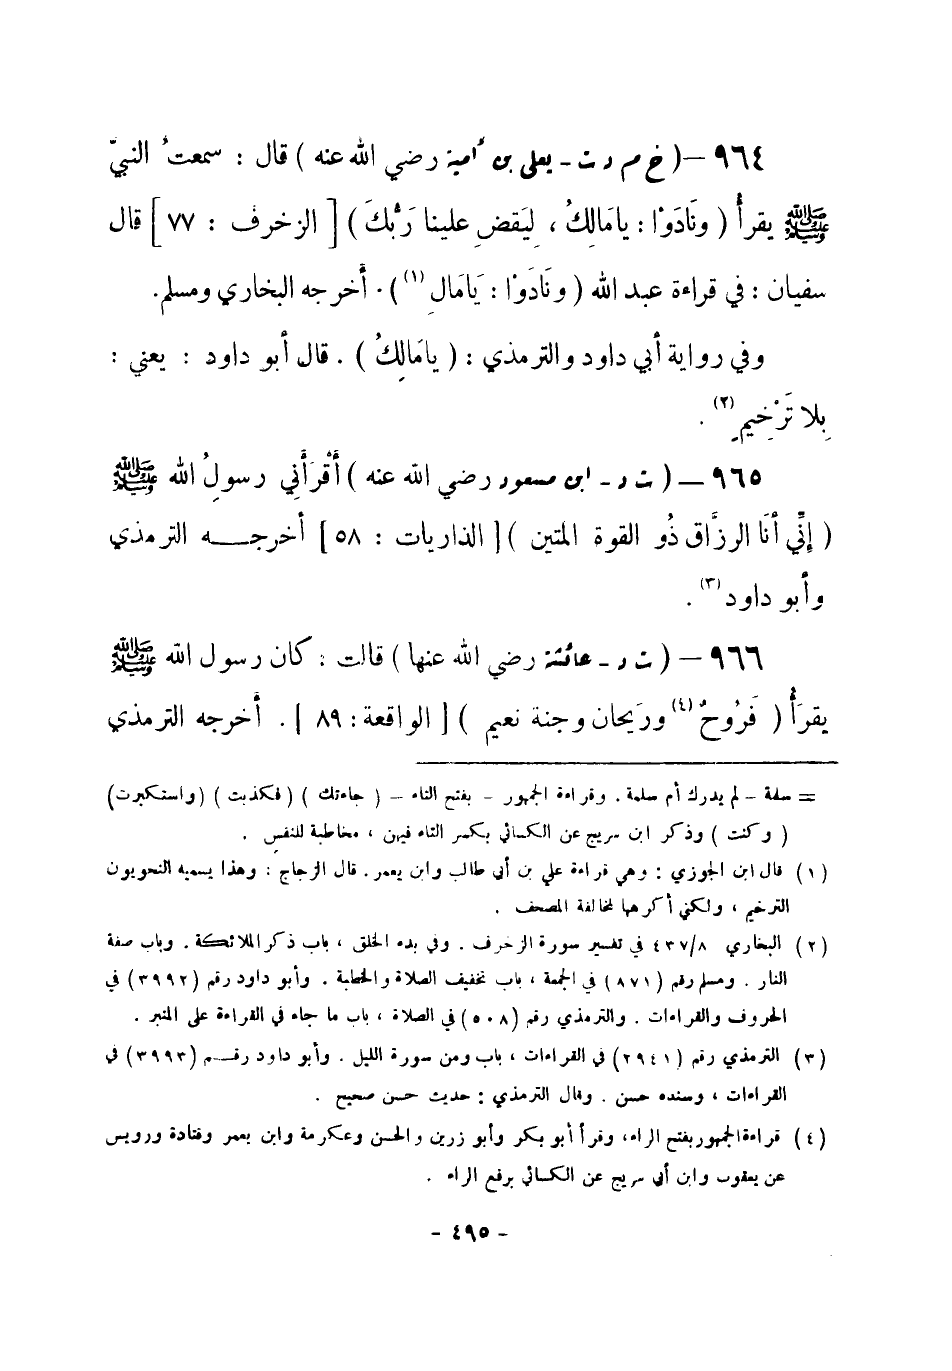 ٩٦٤ – ( خ م د ت ـ يعلى بن أمية رضي الله عنه ) قال : سمعتُ النبيّ
ﷺ يقرأُ ( ونَادَوْا : يامَالِكُ ، لِيَقضِ علينا رَبُّكَ ) [ الزخرف : ٧٧ ] قال
سفيان : في قراءة عبد الله ( ونَادَوْا : يَامَالِ (١) ) . أخرجه البخاري ومسلم.
وفي رواية أبي داود والترمذي : ( يامَالِكُ ) . قال أبو داود : يعني :
بِلا تَرْخِيمٍ (٢) .
٩٦٥ – ( ت د ـ ابن مسعود رضي الله عنه ) أَقْرَأَني رسولُ الله ﷺ
( إِنِّي أنَا الرزَّاق ذُو القوة المتين ) [ الذاريات : ٥٨ ] أخرجــه الترمذي
وأبو داود (٣) .
٩٦٦ – ( ت د ـ عائشة رضي الله عنها ) قالت : كان رسول الله ﷺ
يقرَأُ ( فَرُوحٌ (٤) ورَيحان وجنة نعيم ) [ الواقعة : ٨٩ ] . أخرجه الترمذي
= سلمة – لم يدرك أم سلمة . وقراءة الجمهور – بفتح التاء – ( جاءتك ) ( فكذبت ) ( واستكبرت )
( وكنت ) وذكر ابن سريج عن الكسائي بكسر التاء فيهن ، مخاطبة للنفس .
(١) قال ابن الجوزي : وهي قراءة علي بن أبي طالب وابن يعمر . قال الزجاج : وهذا يسميه النحويون
الترخيم ، ولكني أكرهها لمخالفة المصحف .
(٢) البخاري ٤٣٧/٨ في تفسير سورة الزخرف . وفي بدء الخلق ، باب ذكر الملائكة . وباب صفة
النار . ومسلم رقم (٨٧١) في الجمعة ، باب تخفيف الصلاة والخطبة . وأبو داود رقم (٣٩٩٢) في
الحروف والقراءات . والترمذي رقم (٥٠٨) في الصلاة ، باب ما جاء في القراءة على المنبر .
(٣) الترمذي رقم (٢٩٤١) في القراءات ، باب ومن سورة الليل . وأبو داود رقــم (٣٩٩٣) في
القراءات ، وسنده حسن . وقال الترمذي : حديث حسن صحيح .
(٤) قراءة الجمهور بفتح الراء، وقرأ أبو بكر وأبو رزين والحسن وعكرمة وابن يعمر وقتادة ورويس
عن يعقوب وابن أبي سريج عن الكسائي برفع الراء .
- ٤٩٥ -